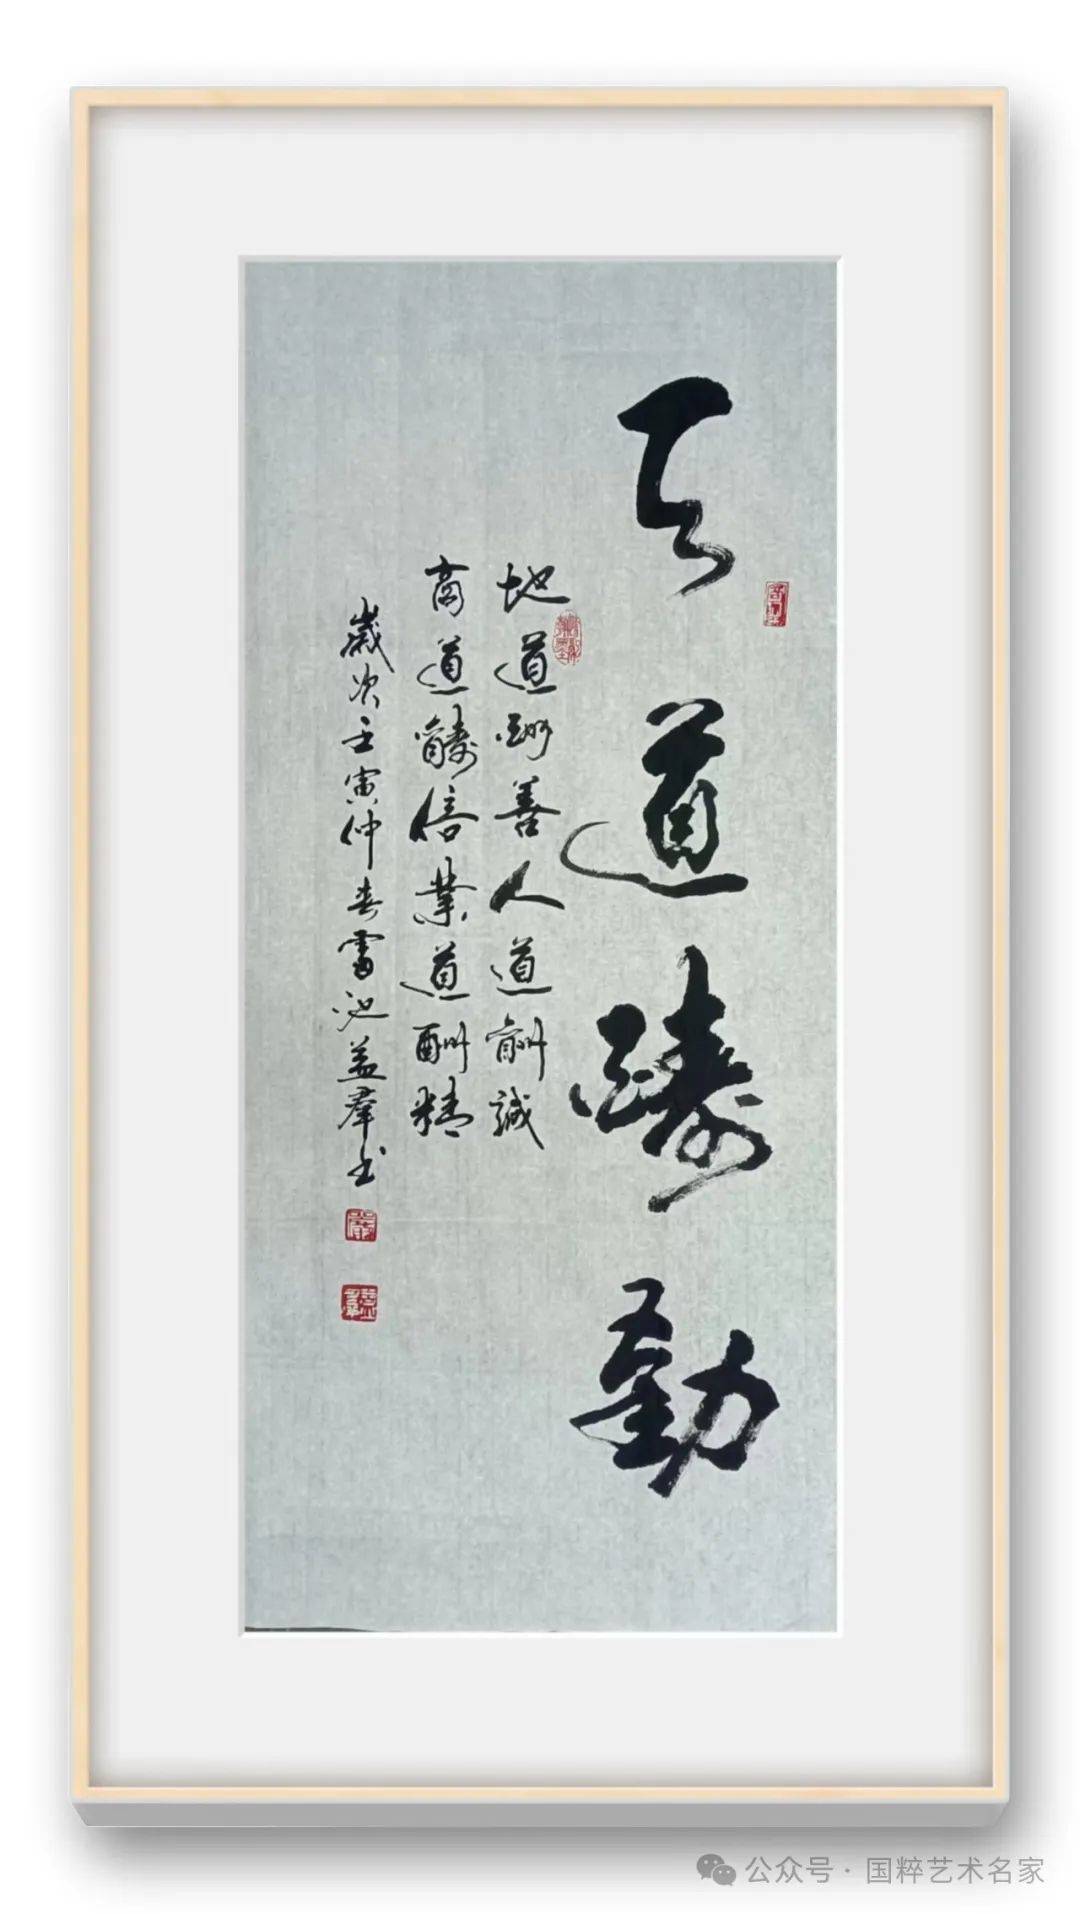 天道醻勤
地道酬善人道酬誠
商道醻信業道酬精
歲次壬寅仲春雷池益羣书
公众号·国粹艺术名家